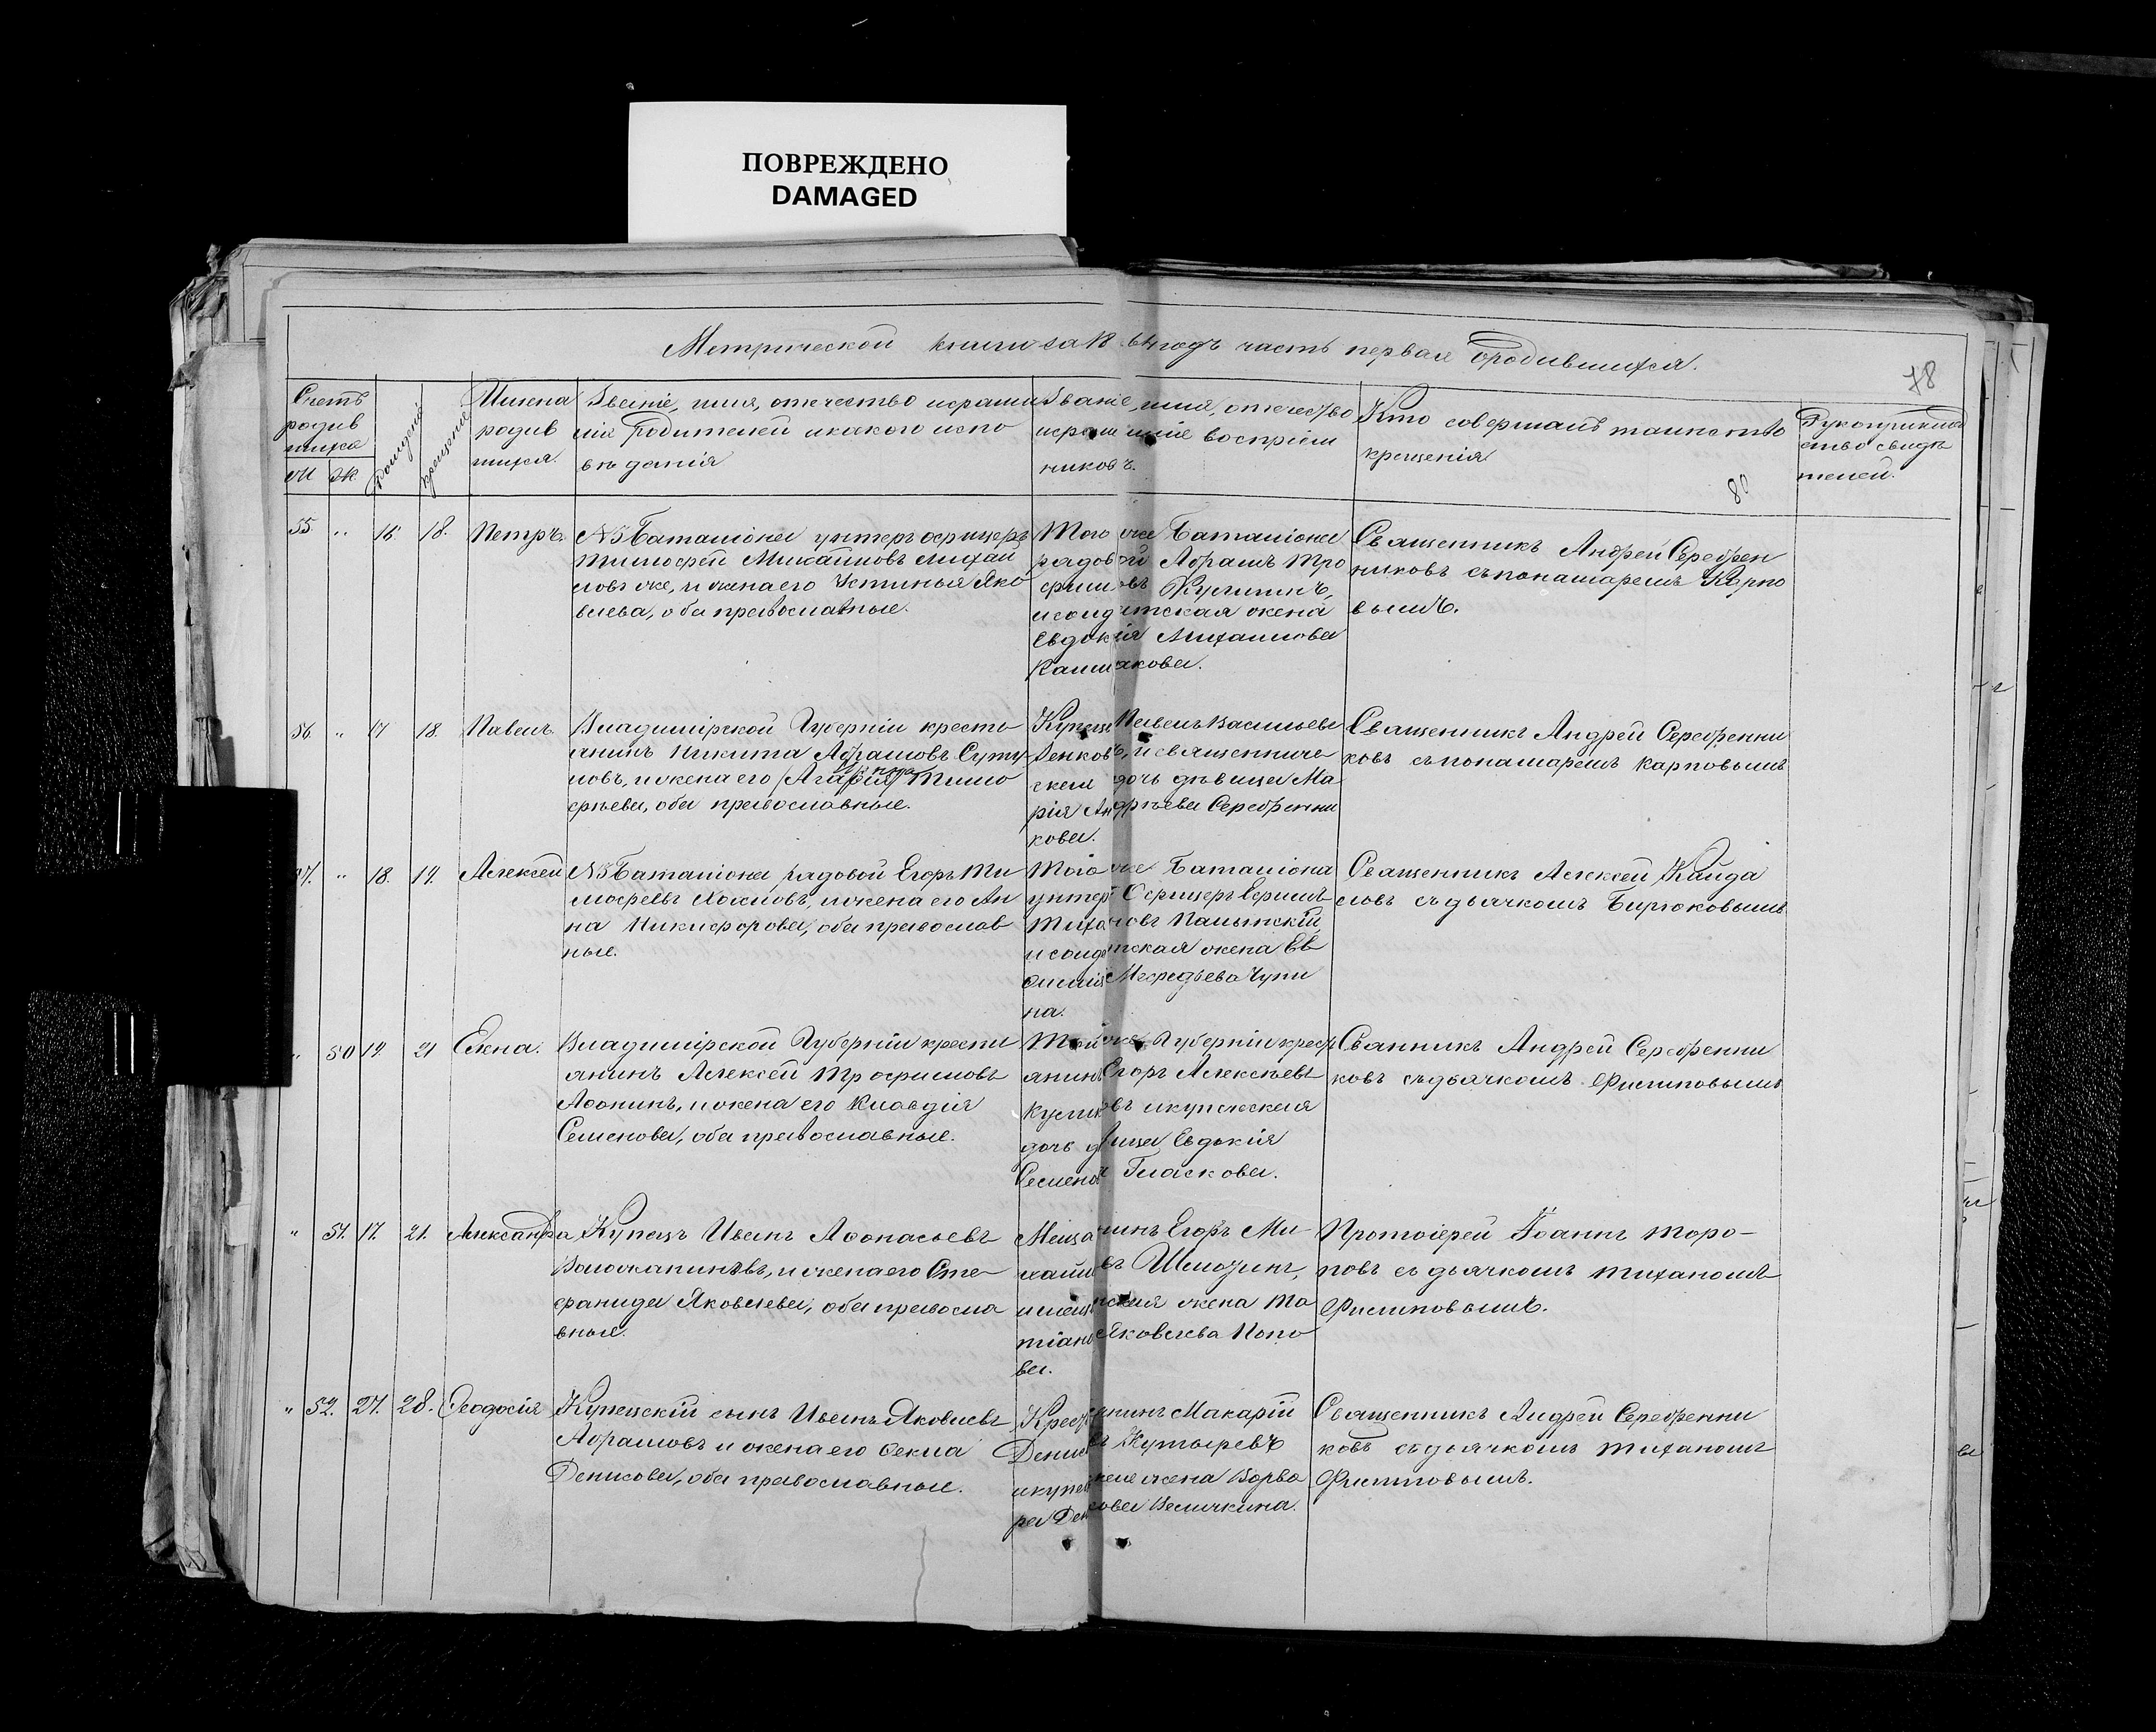 ПОВРЕЖДЕНО
DAMAGED
Метрической книги за 1864 годъ часть первая о родившихся.
78
Счетъ
родив
шихся
М Ж
рожденія
крещенія
Имена
родив
шихся.
Званіе, имя, отчество и фами
лія родителей и какого испо
вѣданія
Званіе, имя, отчество
и фамиліе воспріем
никовъ.
Кто совершалъ таинство
крещенія
80
Рукоприклад
ство свидѣ
телей.
55 " 16. 18. Петръ.
№5 Баталіона унтеръ офицеръ
Тимофей Михайловъ Михай
ловъ же, и жена его Устинья Яко
влева, оба православные.
Того же Баталіона
рядовой Абрамъ Тро
фимовъ
и солдатская жена
Евдокія Михайлова
Калмакова.
Священникъ Андрей Серебрен
никовъ съ пономаремъ Карпо
вымъ.
56 " 17 18. Павелъ.
Владимірской Губерніи кресть
янинъ Никита Абрамовъ
и жена его Тимо
фѣева, оба православные.
Купецъ Павелъ Васильевъ
Зенковъ, и священниче
ская дочь дѣвица Ма
рія Андрѣева Серебренни
кова.
Священникъ Андрей Серебренни
ковъ съ пономаремъ Карповымъ
57. " 18. 19. Алексей
№5 Баталіона рядовой Егоръ Ти
мофеевъ и жена его Ан
на Никифорова, оба православ
ные.
Того же Баталіона
унтеръ Офицеръ
Тихановъ
и солдатская жена Ев
Мефодьева Чупи
на.
Священникъ Алексей Кайда
ловъ съ дьячкомъ Бирюковымъ
" 50 19. 21 Елена.
Владимірской Губерніи крести
янинъ Алексей Трофимовъ
Аѳонинъ, и жена его Клавдія
Семенова, оба православные.
Той же Губерніи крест
янинъ Егоръ Алексѣевъ
и купеческая
дочь дѣвица Евдокія
Семенова Гласкова.
Свяникъ Андрей Серебренни
ковъ съ дьячкомъ Филиповымъ
" 51. 17. 21. Александра
Купецъ Иванъ Аѳонасьевъ
и жена его Сте
фанида Яковлева, оба правосла
вные.
Мещанинъ Егоръ Ми
хайловъ
и мещанская жена Та
тіана Яковлева Попо
ва.
Протоіерей Іоаннъ Торо-
повъ съ дьячкомъ Тихономъ
Филиповымъ.
" 52. 27. 28. Ѳеодосія
Купецскій сынъ Иванъ Яковлевъ
Абрамовъ и жена его Ѳекла
Денисова, оба православные.
Крестьянинъ Макарій
Денисовъ Кутыревъ
и купецкая жена Варва
ра Денисова Величкина.
Священникъ Андрей Серебренни
ковъ съ дьячкомъ Тихономъ
Филиповымъ.